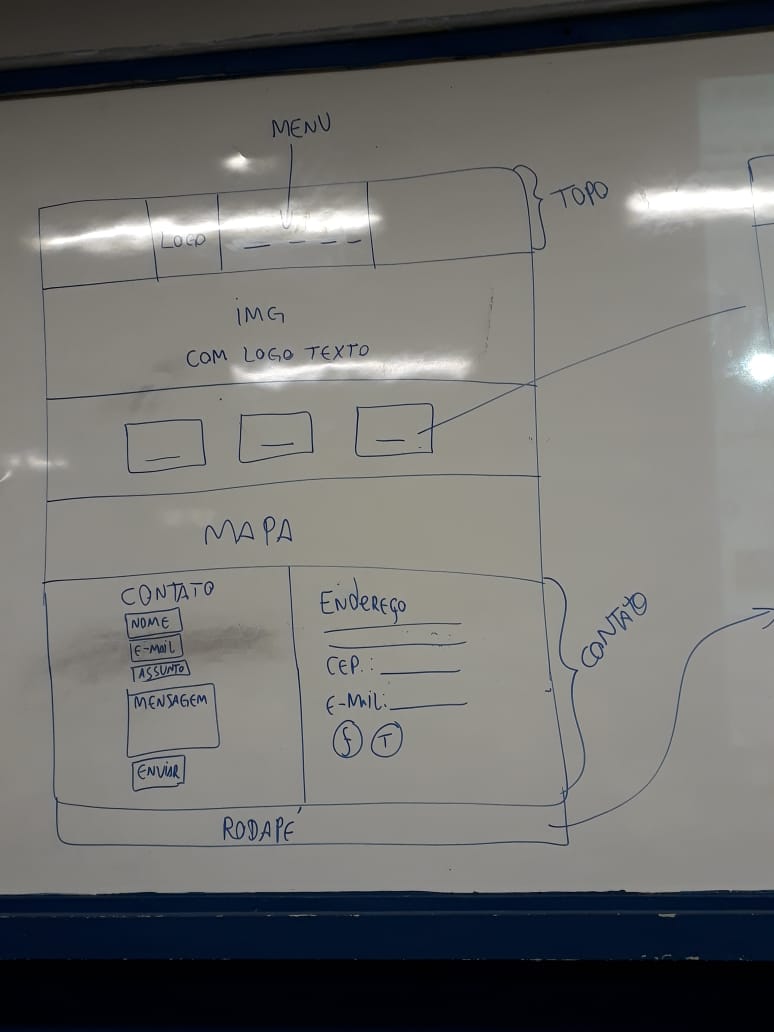 MENU
TOPO
LOGO
IMG
COM LOGO TEXTO
MAPA
CONTATO
NOME
E-MAIL
ASSUNTO
MENSAGEM
ENVIAR
ENDEREÇO
CEP.:
E-MAIL:
f T
CONTATO
RODAPÉ